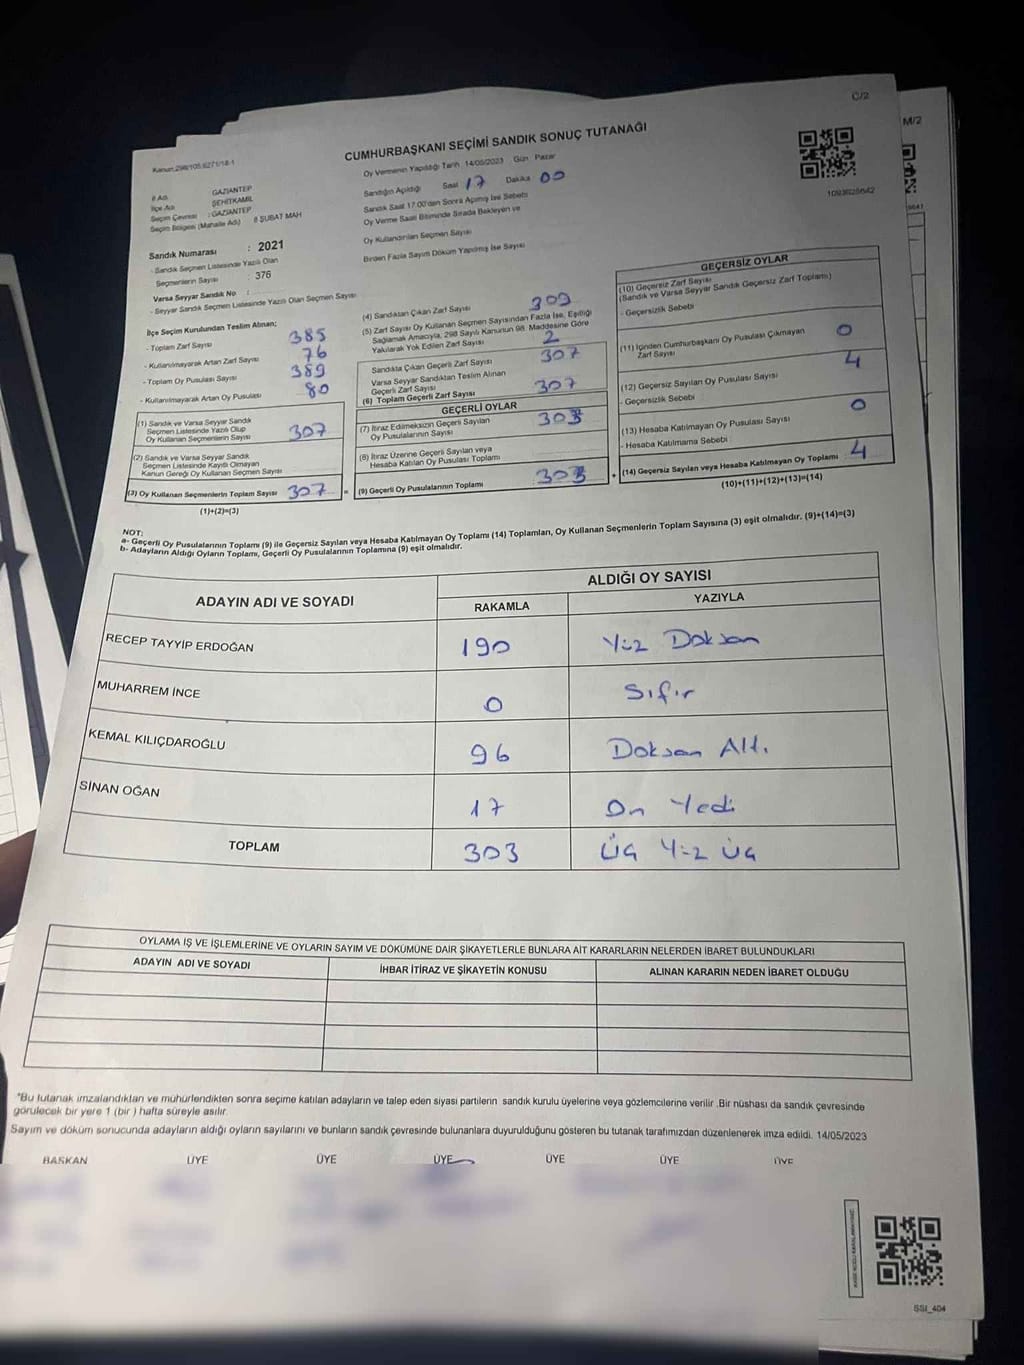 C/2
M/2
Kanun:298/105.6271/18-1
CUMHURBAŞKANI SEÇİMİ SANDIK SONUÇ TUTANAĞI
Oy Vermenin Yapıldığı Tarih 14/05/2023 Gün Pazar
İl Adı GAZİANTEP
İlçe Adı ŞEHİTKAMİL
Seçim Çevresi : GAZİANTEP
Seçim Bölgesi (Mahalle Adı) 8 ŞUBAT MAH
Sandığın Açıldığı Saat 17 Dakika 00
Sandık Saat 17:00'den Sonra Açılmış İse Sebebi
Oy Verme Saati Bitiminde Sırada Bekleyen ve
Oy Kullandırılan Seçmen Sayısı
Birden Fazla Sayım Döküm Yapılmış İse Sayısı
Sandık Numarası : 2021
- Sandık Seçmen Listesinde Yazılı Olan
Seçmenlerin Sayısı : 376
Varsa Seyyar Sandık No :
- Seyyar Sandık Seçmen Listesinde Yazılı Olan Seçmen Sayısı
İlçe Seçim Kurulundan Teslim Alınan;
- Toplam Zarf Sayısı 385
- Kullanılmayarak Artan Zarf Sayısı 76
- Toplam Oy Pusulası Sayısı 389
- Kullanılmayarak Artan Oy Pusulası 80
(1) Sandık ve Varsa Seyyar Sandık
Seçmen Listesinde Yazılı Olup
Oy Kullanan Seçmenlerin Sayısı 307
(2) Sandık ve Varsa Seyyar Sandık
Seçmen Listesinde Kayıtlı Olmayan
Kanun Gereği Oy Kullanan Seçmen Sayısı
(3) Oy Kullanan Seçmenlerin Toplam Sayısı 307 =
(1)+(2)=(3)
(4) Sandıktan Çıkan Zarf Sayısı 309
(5) Zarf Sayısı Oy Kullanan Seçmen Sayısından Fazla İse, Eşitliği
Sağlamak Amacıyla, 298 Sayılı Kanunun 98. Maddesine Göre
Yakılarak Yok Edilen Zarf Sayısı 2
Sandıkta Çıkan Geçerli Zarf Sayısı 307
Varsa Seyyar Sandıktan Teslim Alınan
Geçerli Zarf Sayısı
(6) Toplam Geçerli Zarf Sayısı 307
GEÇERLİ OYLAR
(7) İtiraz Edilmeksizin Geçerli Sayılan
Oy Pusulalarının Sayısı 303
(8) İtiraz Üzerine Geçerli Sayılan veya
Hesaba Katılan Oy Pusulası Toplamı
(9) Geçerli Oy Pusulalarının Toplamı 303 +
GEÇERSİZ OYLAR
(10) Geçersiz Zarf Sayısı
(Sandık ve Varsa Seyyar Sandık Geçersiz Zarf Toplamı)
- Geçersizlik Sebebi
(11) İçinden Cumhurbaşkanı Oy Pusulası Çıkmayan
Zarf Sayısı 0
(12) Geçersiz Sayılan Oy Pusulası Sayısı 4
- Geçersizlik Sebebi
(13) Hesaba Katılmayan Oy Pusulası Sayısı 0
- Hesaba Katılmama Sebebi
(14) Geçersiz Sayılan veya Hesaba Katılmayan Oy Toplamı 4
(10)+(11)+(12)+(13)=(14)
NOT;
a- Geçerli Oy Pusulalarının Toplamı (9) ile Geçersiz Sayılan veya Hesaba Katılmayan Oy Toplamı (14) Toplamları, Oy Kullanan Seçmenlerin Toplam Sayısına (3) eşit olmalıdır. (9)+(14)=(3)
b- Adayların Aldığı Oyların Toplamı, Geçerli Oy Pusulalarının Toplamına (9) eşit olmalıdır.
ADAYIN ADI VE SOYADI
ALDIĞI OY SAYISI
RAKAMLA YAZIYLA
RECEP TAYYİP ERDOĞAN 190 Yüz Doksan
MUHARREM İNCE 0 Sıfır
KEMAL KILIÇDAROĞLU 96 Doksan Altı
SİNAN OĞAN 17 On Yedi
TOPLAM 303 Üç Yüz Üç
OYLAMA İŞ VE İŞLEMLERİNE VE OYLARIN SAYIM VE DÖKÜMÜNE DAİR ŞİKAYETLERLE BUNLARA AİT KARARLARIN NELERDEN İBARET BULUNDUKLARI
ADAYIN ADI VE SOYADI İHBAR İTİRAZ VE ŞİKAYETİN KONUSU ALINAN KARARIN NEDEN İBARET OLDUĞU
*Bu tutanak imzalandıktan ve mühürlendikten sonra seçime katılan adayların ve talep eden siyasi partilerin sandık kurulu üyelerine veya gözlemcilerine verilir .Bir nüshası da sandık çevresinde
görülecek bir yere 1 (bir ) hafta süreyle asılır.
Sayım ve döküm sonucunda adayların aldığı oyların sayılarını ve bunların sandık çevresinde bulunanlara duyurulduğunu gösteren bu tutanak tarafımızdan düzenlenerek imza edildi. 14/05/2023
BAŞKAN ÜYE ÜYE ÜYE ÜYE ÜYE ÜYE
SSI_404